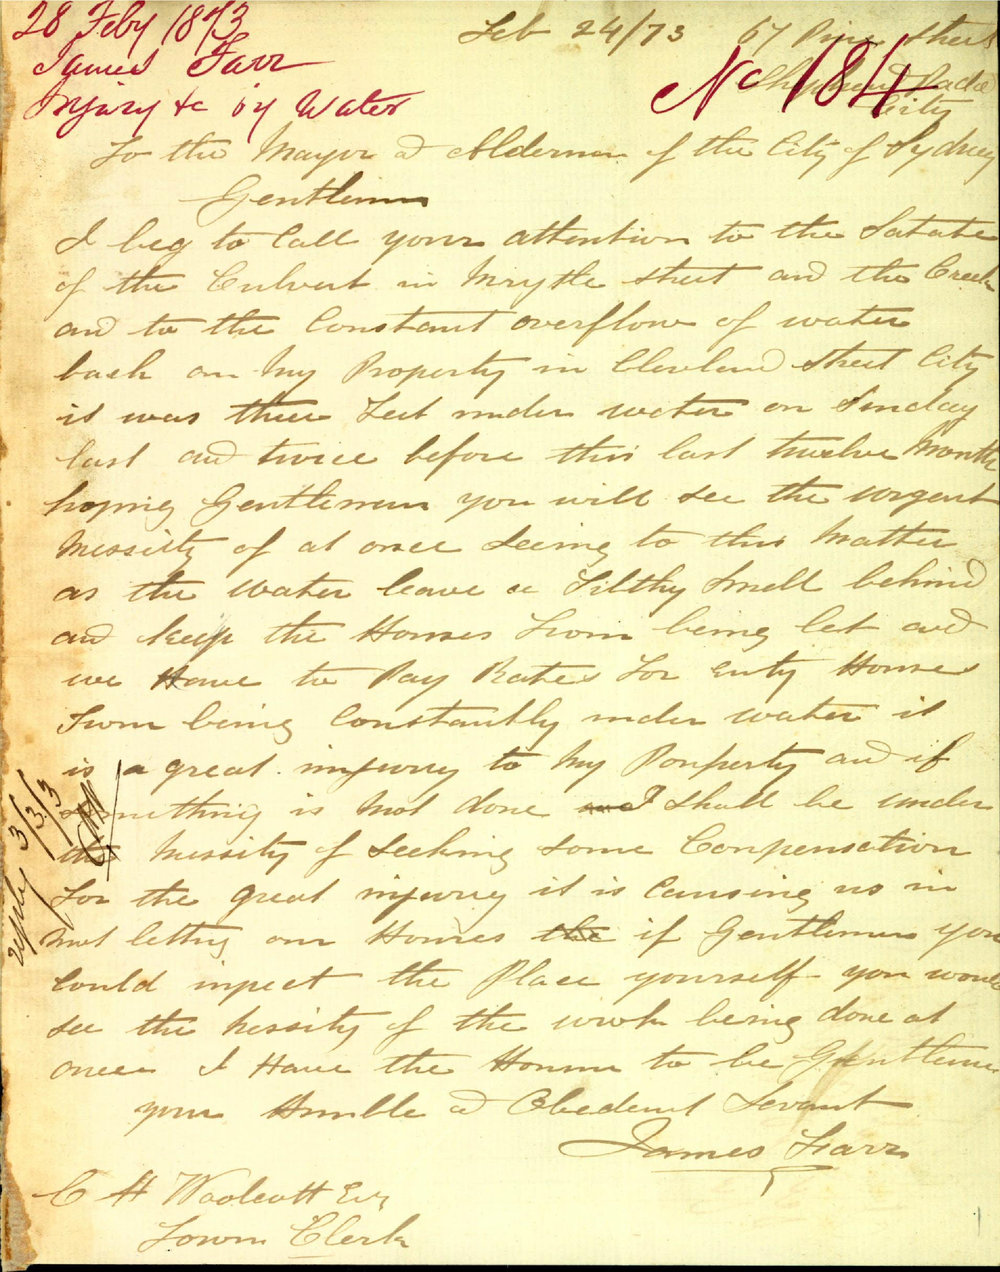 28 Feby 1873
James Farr
Injury &c by Water
No 184
Feb 24/73 67 Pine Street
City
To the Mayor & Aldermen of the City of Sydney
Gentlemen
I beg to Call your attention to the Satate
of the Culvert in Mrytle street and the Creek
and to the Constant overflow of water
back on My Property in Clevland Street City
it was three Feet under water on Sunday
last and twice before this last twelve Months
hoping Gentlemen you will see the urgent
Nessisity of at once Seeing to this Matter
as the water leave a Filthy Smell behind
and keep the Houses From being let and
we Have to Pay Rates For Emty Houses
From being Constantly under water it
is a great injurey to My Ponperty and if
somthing is Not done I Shall be under
the Nessisity of Seeking Some Conpensation
For the great injurey it is Causing us in
Not letting our Houses the if Gentlemen you
Could inpect the Place yourself you would
see the Nessity of the work being done at
once I Have the Honour to be Gentlemen
your Humble & Obedent Servant
James Farr
C H Woolcott Esq
Town Clerk
reply 3/3/73